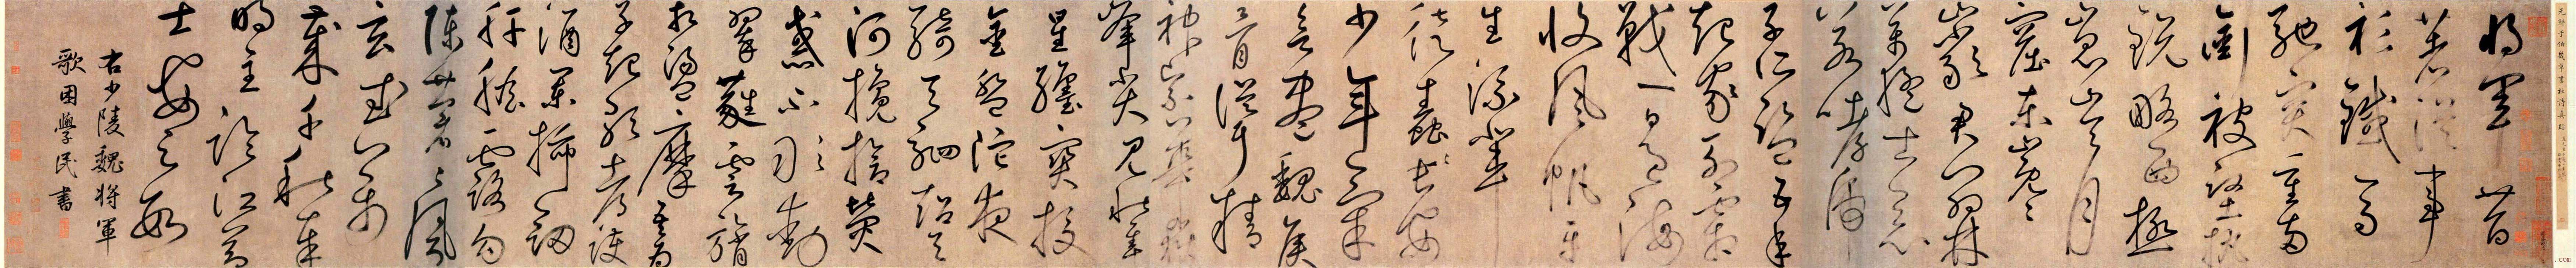 將軍昔
著從事
衫鐵馬
馳突重兩
銜被堅執
銳略西極
崑崙月
窟東嶄
巖君門羽林
萬猛士惡
若哮虎
子所監五年
起家列霜
戟一日過海
收風帆平
生流輩
徒蠢〻長安
少年氣
欲盡魏侯
骨聳精
神緊華嶽
峯尖見秋隼
星纏寶校
金盤陀夜
騎天駟超天
河攙搶熒
惑不敢動
翠蕤雲旓
相蕩摩吾為
子起歌都護
酒闌插劍
肝膽露鉤
陳蒼〻風
玄武萬
歲千秋奉
明主臨江節
士安足數
右少陵魏將軍
歌困學民書